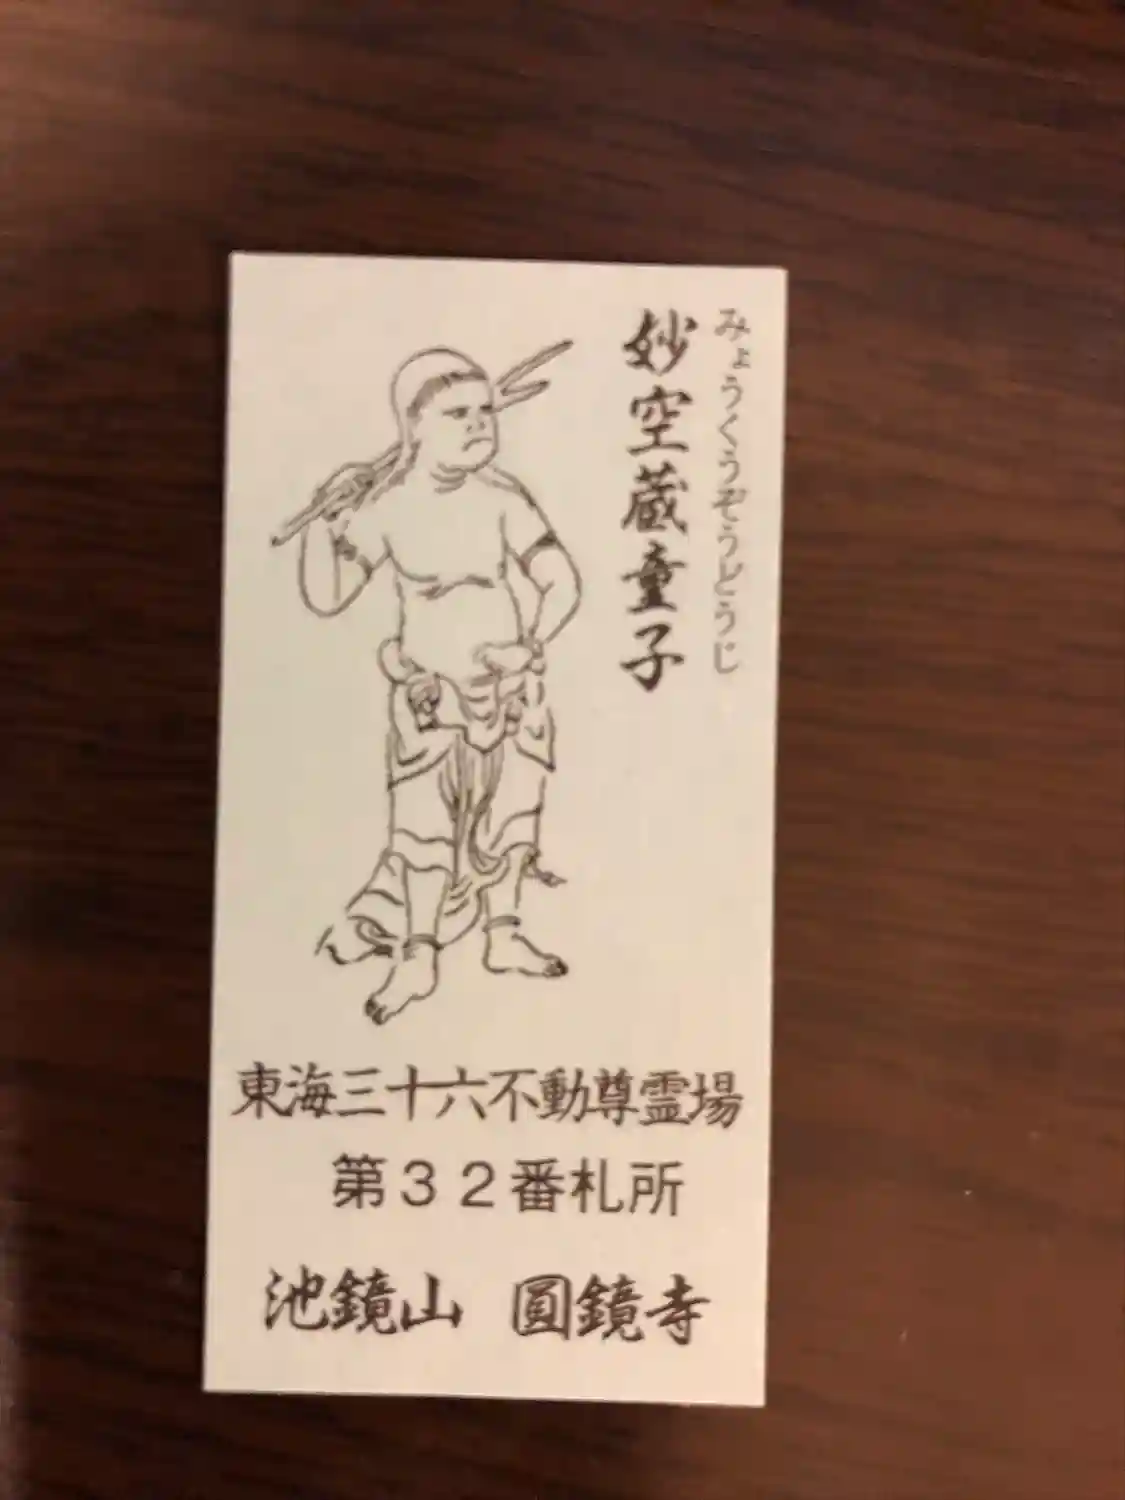 みょうくうぞうどうじ
妙空蔵童子
東海三十六不動尊霊場
第３２番札所
池鏡山　圓鏡寺